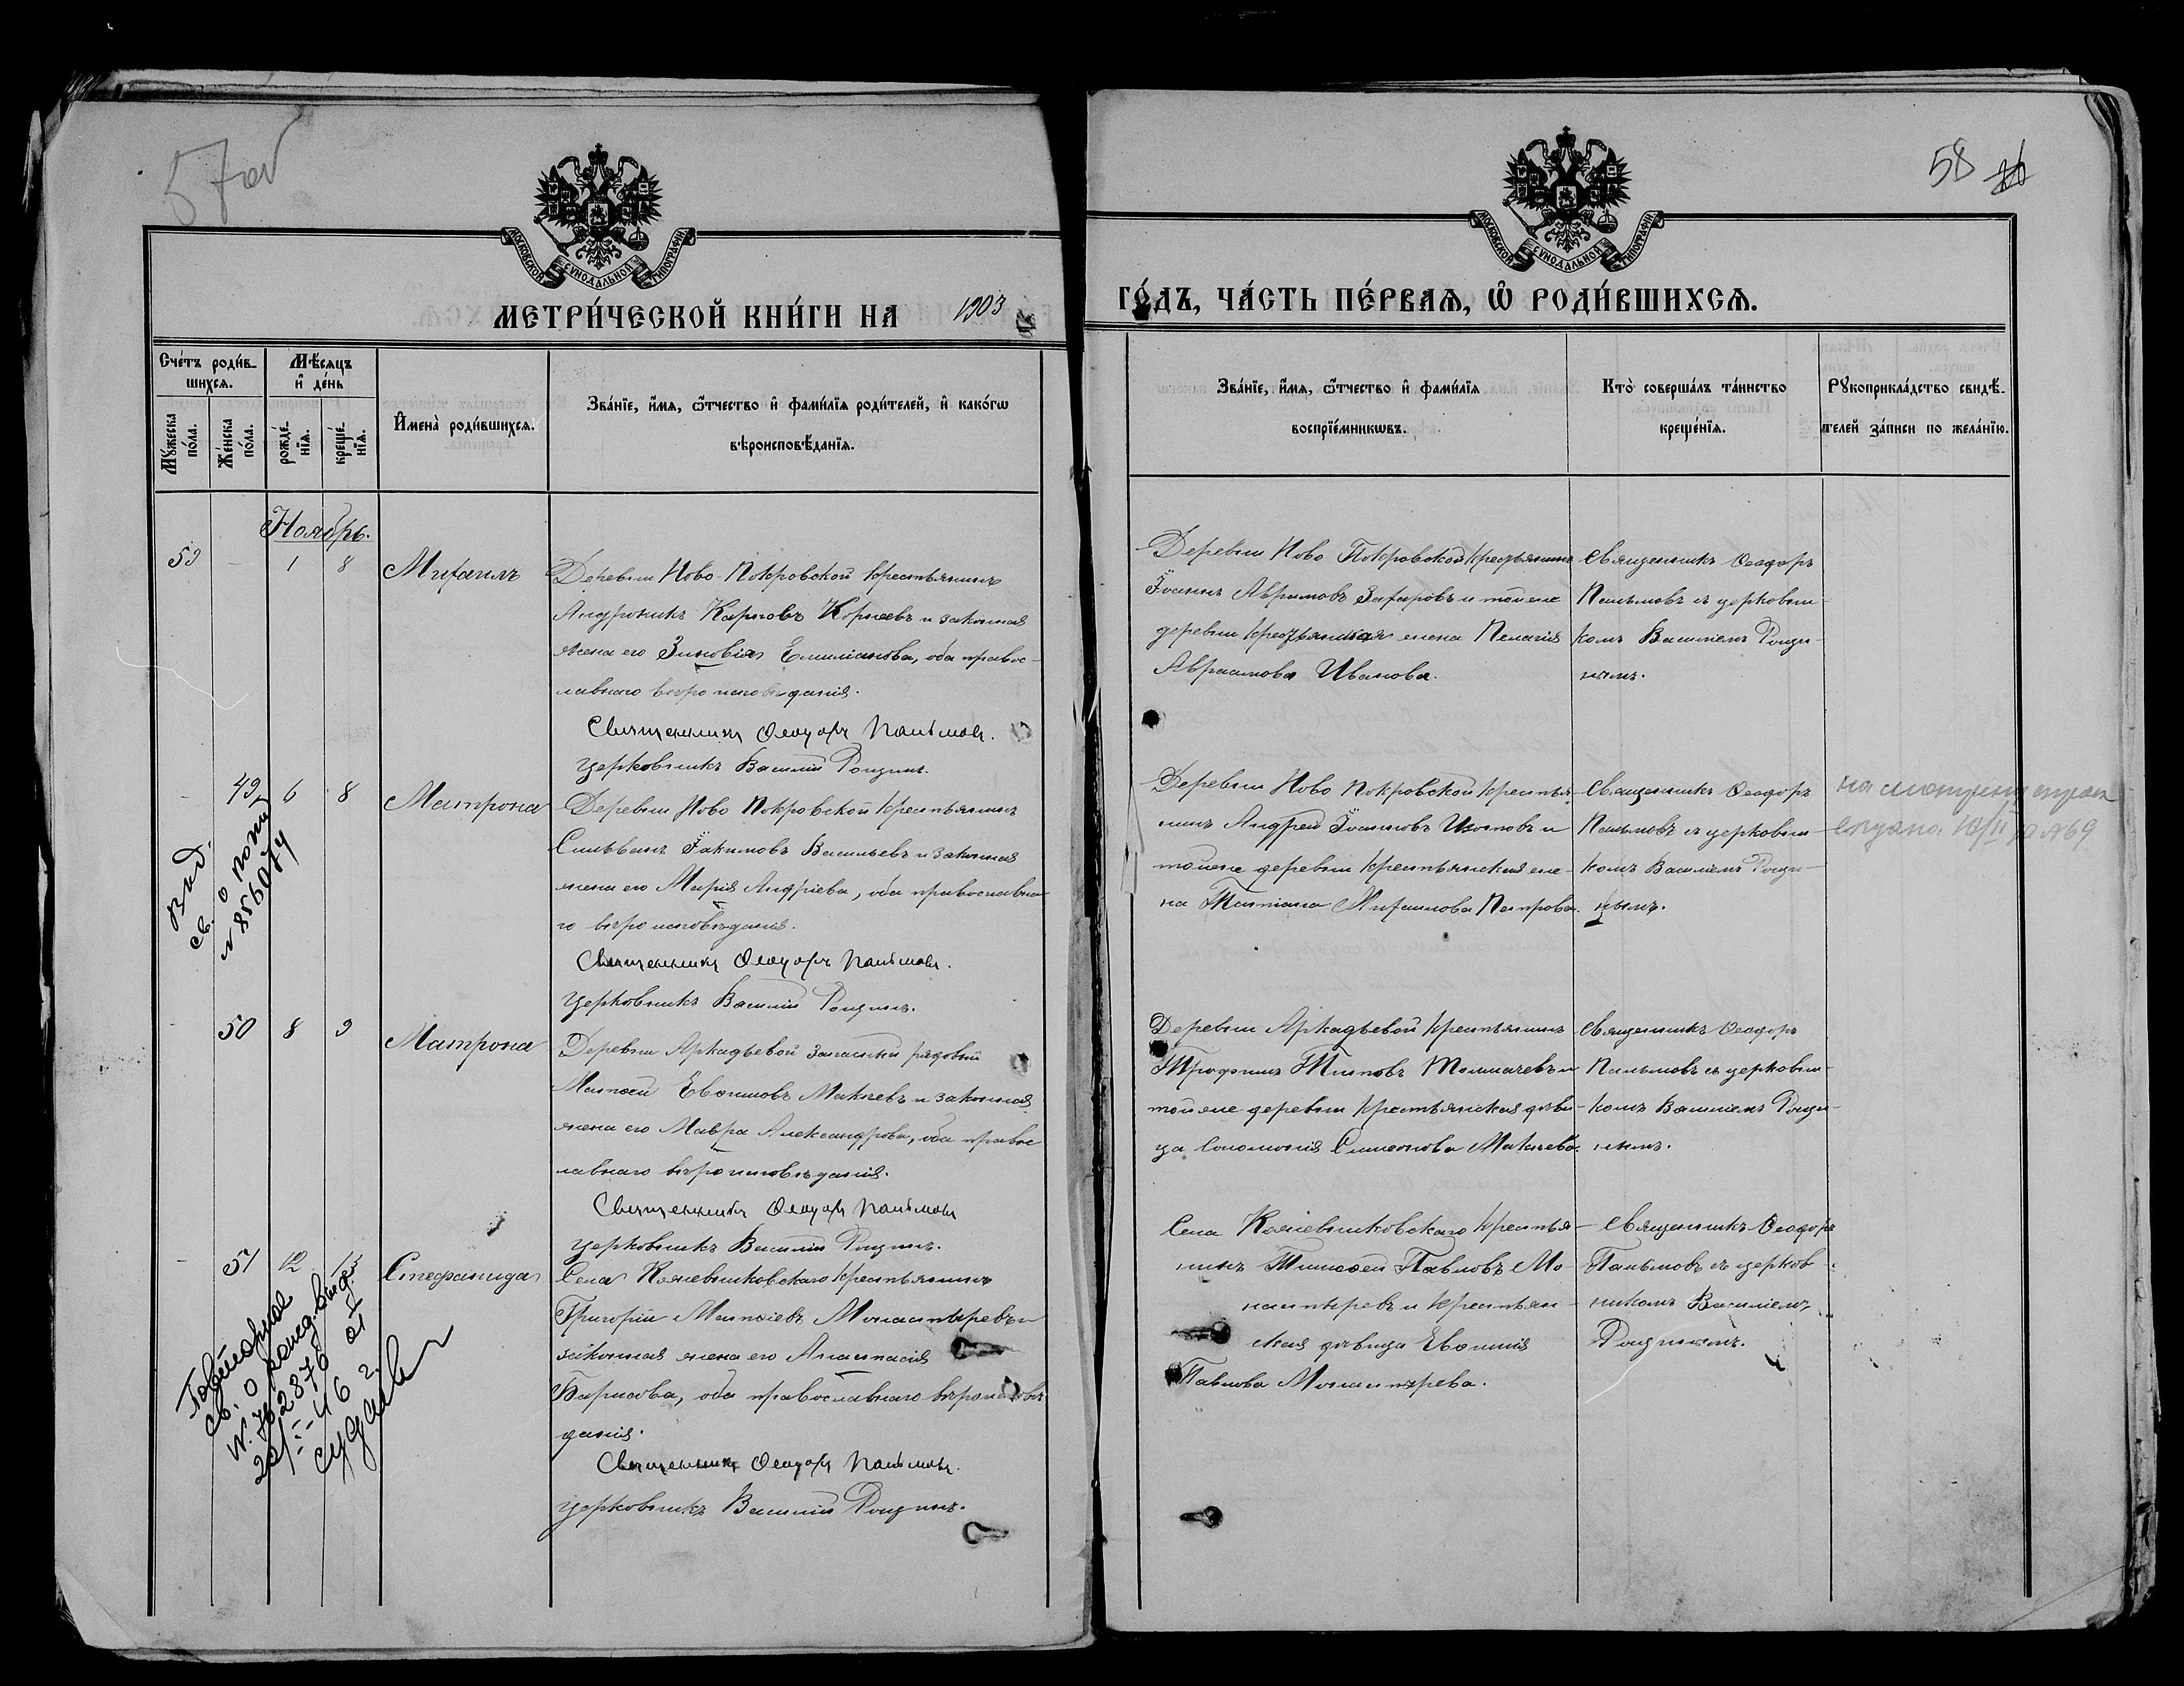 57об
МОСКОВСКОЙ СѴНОДАЛЬНОЙ ТИПОГРАФІИ
МЕТРИ́ЧЕСКОЙ КНИ́ГИ НА 1903
Сче́тъ роди́в-
шихсѧ.
Мѣ́сѧцъ
и҆ де́нь
Мꙋ́жеска
по́ла.
Же́нска
по́ла.
рожде́-
нїѧ.
креще́-
нїѧ.
И҆мена̀ роди́вшихсѧ.
Зва́нїе, и҆́мѧ, ѻ҆́тчество и҆ фами́лїѧ роди́телей, и҆ како́гѡ
вѣроисповѣ́данїѧ.
Ноябрь.
53 - 1 8 Михаилъ
Деревни Ново-Покровской крестьянинъ
Андроникъ Карповъ Корнеевъ и законная
жена его Зиновія Емиліанова, оба правос-
лавнаго вѣроисповѣданія.
Священникъ Ѳеодоръ Пальмовъ.
Церковникъ Василій Рощинъ.
- 49 6 8 Матрона
Деревни Ново Покровской крестьянинъ
Сильванъ Іакимовъ Васильевъ и законная
жена его Марія Андріева, оба православна-
го вѣроисповѣданія.
Священникъ Ѳеодоръ Пальмовъ.
Церковникъ Василій Рощинъ.
св. о рожд
№ 856074
- 50 8 9 Матрона
Деревни Аркадьевой запасный рядовый
Матѳей Евѳимовъ Макѣевъ и законная
жена его Мавра Александрова, оба правос
лавнаго вѣроисповѣданія.
Священникъ Ѳеодоръ Пальмовъ
Церковникъ Василій Рощинъ.
- 51 12 13 Стефанида
Села Кожевниковскаго крестьянинъ
Григорій Матѳіевъ Монастыревъ и
законная жена его Анастасія
Борисова, оба православнаго вѣроисповѣ
данія.
Священникъ Ѳеодоръ Пальмовъ.
Церковникъ Василій Рощинъ.
Повторное
св. о рожд. выд.
58
МОСКОВСКОЙ СѴНОДАЛЬНОЙ ТИПОГРАФІИ
ГО́ДЪ, ЧА́СТЬ ПЕ́РВАѦ, Ѡ҆ РОДИ́ВШИХСѦ.
Зва́нїе, и҆́мѧ, ѻ҆́тчество и҆ фами́лїѧ
воспрїе́мникѡвъ.
Кто̀ соверша́лъ та́инство
креще́нїѧ.
Рꙋкоприкла́дство свидѣ́-
телей за́писи по жела́нїю.
Деревни Ново Покровской крестьянинъ
Іоаннъ Абрамовъ Захаровъ и тойже
деревни крестьянская жена Пелагія
Авраамова Иванова.
Священникъ Ѳеодоръ
Пальмовъ съ церковни-
комъ Василіемъ Рощи-
нымъ.
Деревни Ново Покровской крестья-
нинъ Андрей Іоанновъ Изотовъ и
тойже деревни крестьянская же-
на Татіана Михаилова Петрова.
Священникъ Ѳеодоръ
Пальмовъ съ церковни-
комъ Василіемъ Рощи-
нымъ.
Деревни Аркадьевой крестьянинъ
Трофимъ Титовъ Толмачевъ и
тойже деревни крестьянская дѣви-
ца Соломонія Симеонова Макѣева.
Священникъ Ѳеодоръ
Пальмовъ съ церковни-
комъ Василіемъ Рощи-
нымъ.
Села Кожевниковскаго крестья-
нинъ Тимоѳей Павловъ Мо-
настыревъ и крестьян-
ская дѣвица Евѳимія
Павлова Монастырева.
Священникъ Ѳеодоръ
Пальмовъ съ церков-
никомъ Василіемъ
Рощинымъ.